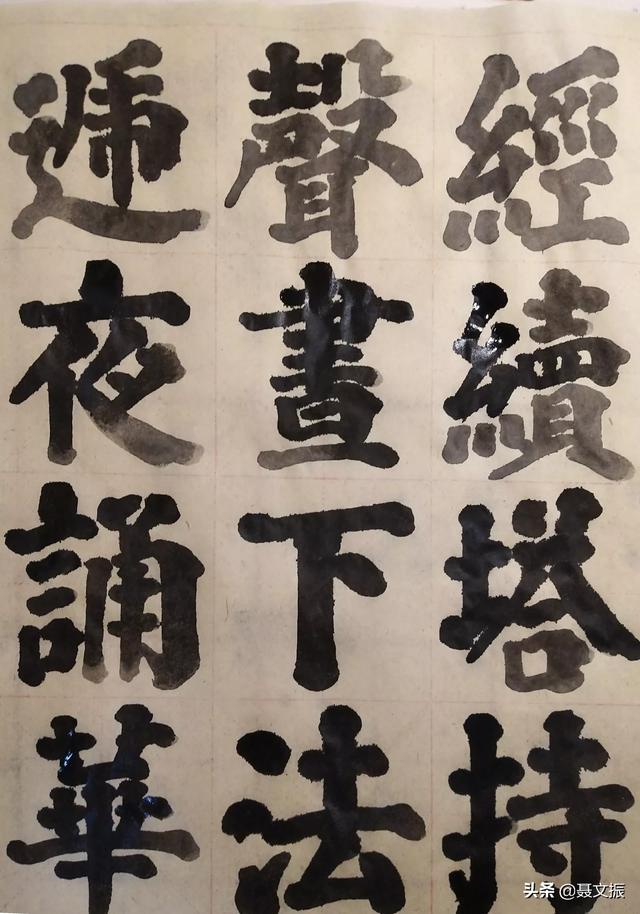 經聲遞
續晝夜
塔下誦
持法華
头条 @聂文振